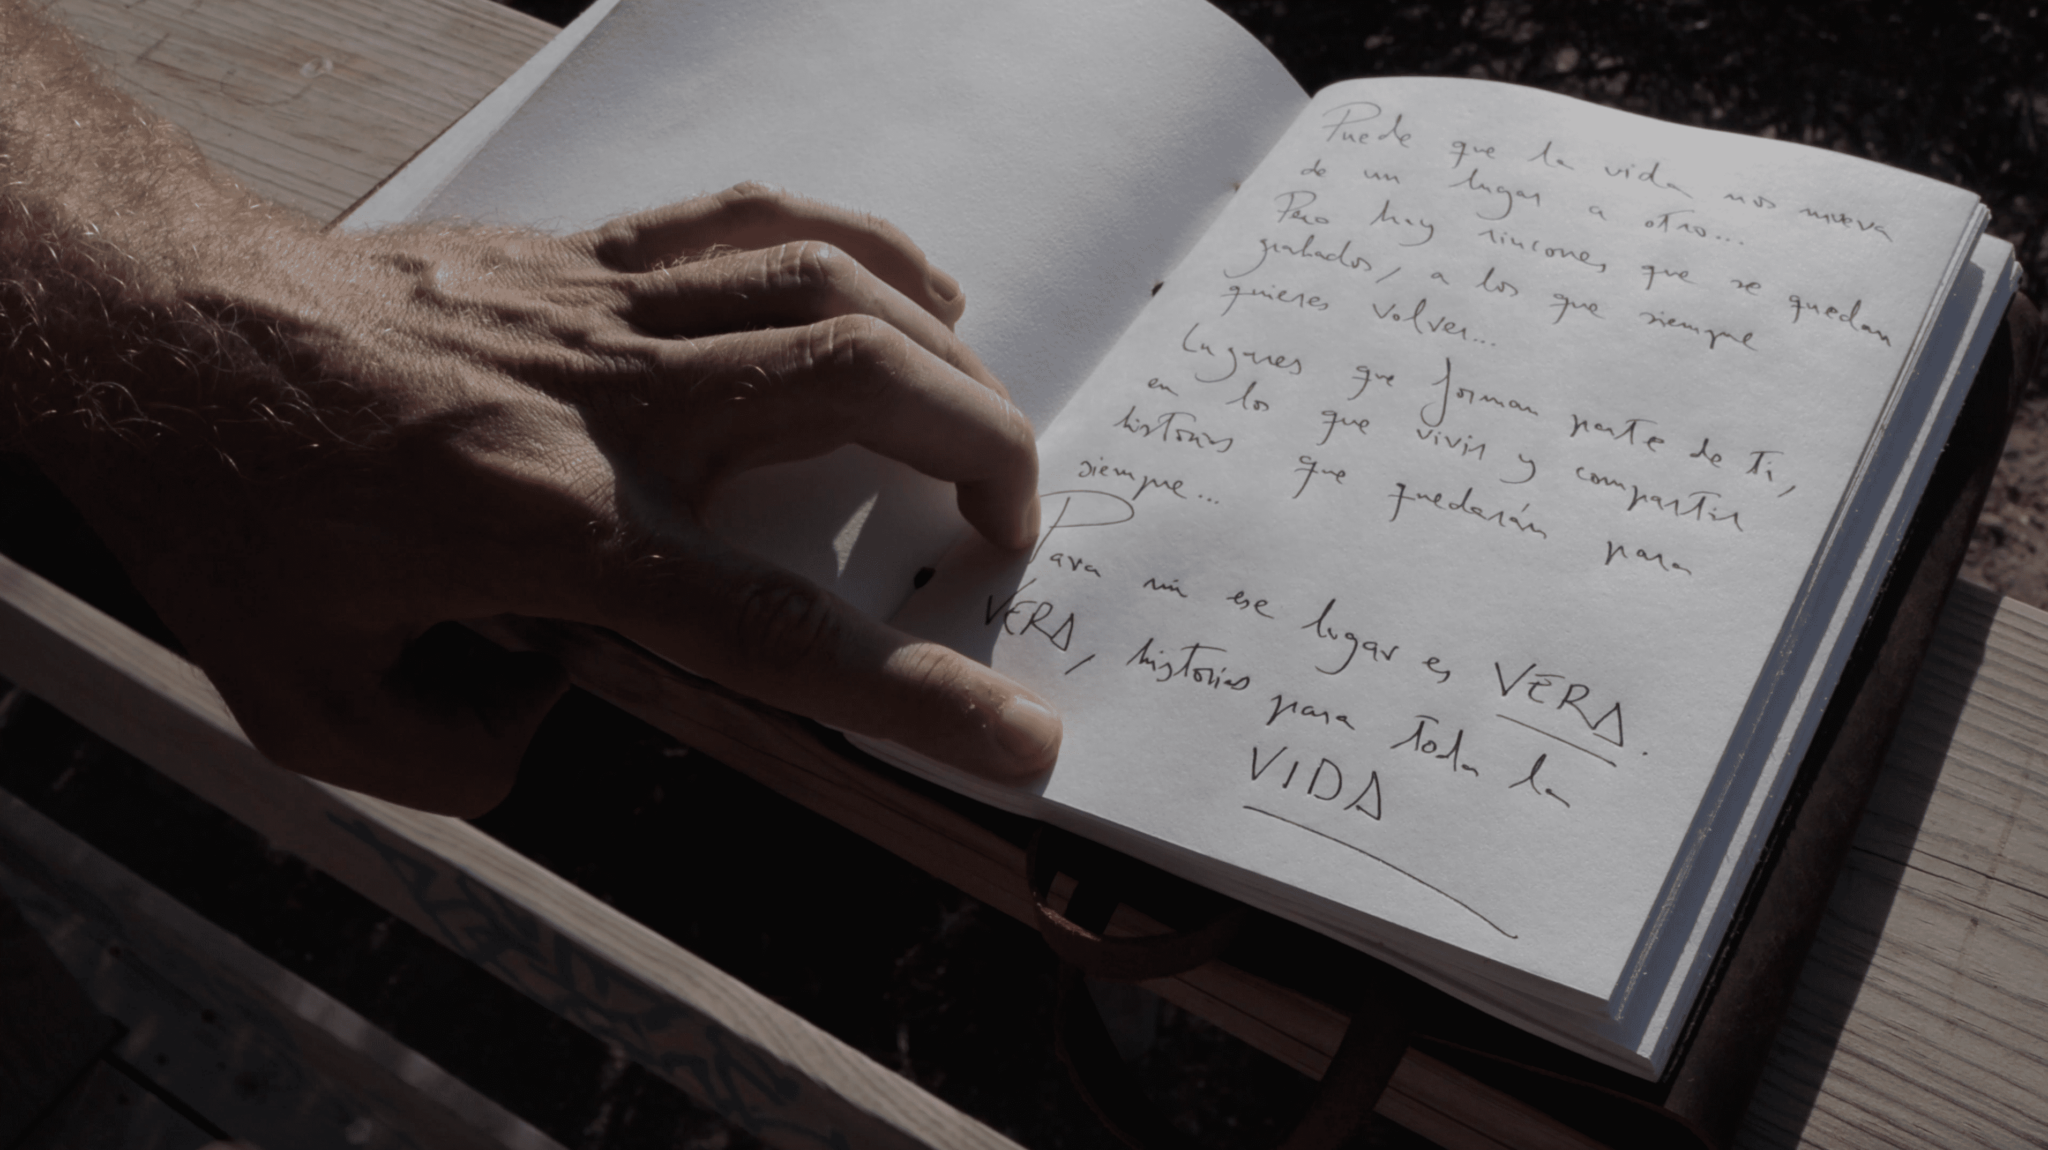 Puede que la vida nos mueva
de un lugar a otro...
Pero hay rincones que se quedan
grabados, a los que siempre
quieres volver...
Lugares que forman parte de ti,
en los que vivir y compartir
historias que quedarán para
siempre...
Para mi ese lugar es VERA.
VERA, historias para toda la
VIDA